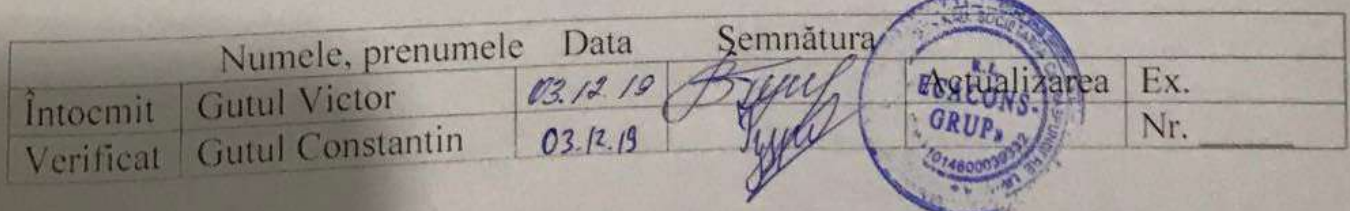 Numele, prenumele Data Semnătura
Întocmit Gutul Victor 03.12.19 Actualizarea Ex.
Verificat Gutul Constantin 03.12.19 Nr. ______
ESACONS-
GRUP»